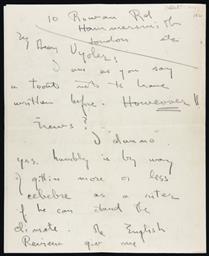 10 Rowan Rd.
Hammersmith
London
My dear Vyder,
I am as you say
a to not to have
written before. However!!
"News"?
I dunno.
yes. humbly is by way
of gittin more or less
celebre as a riter
if he can stand the
climate. The English
Review give me